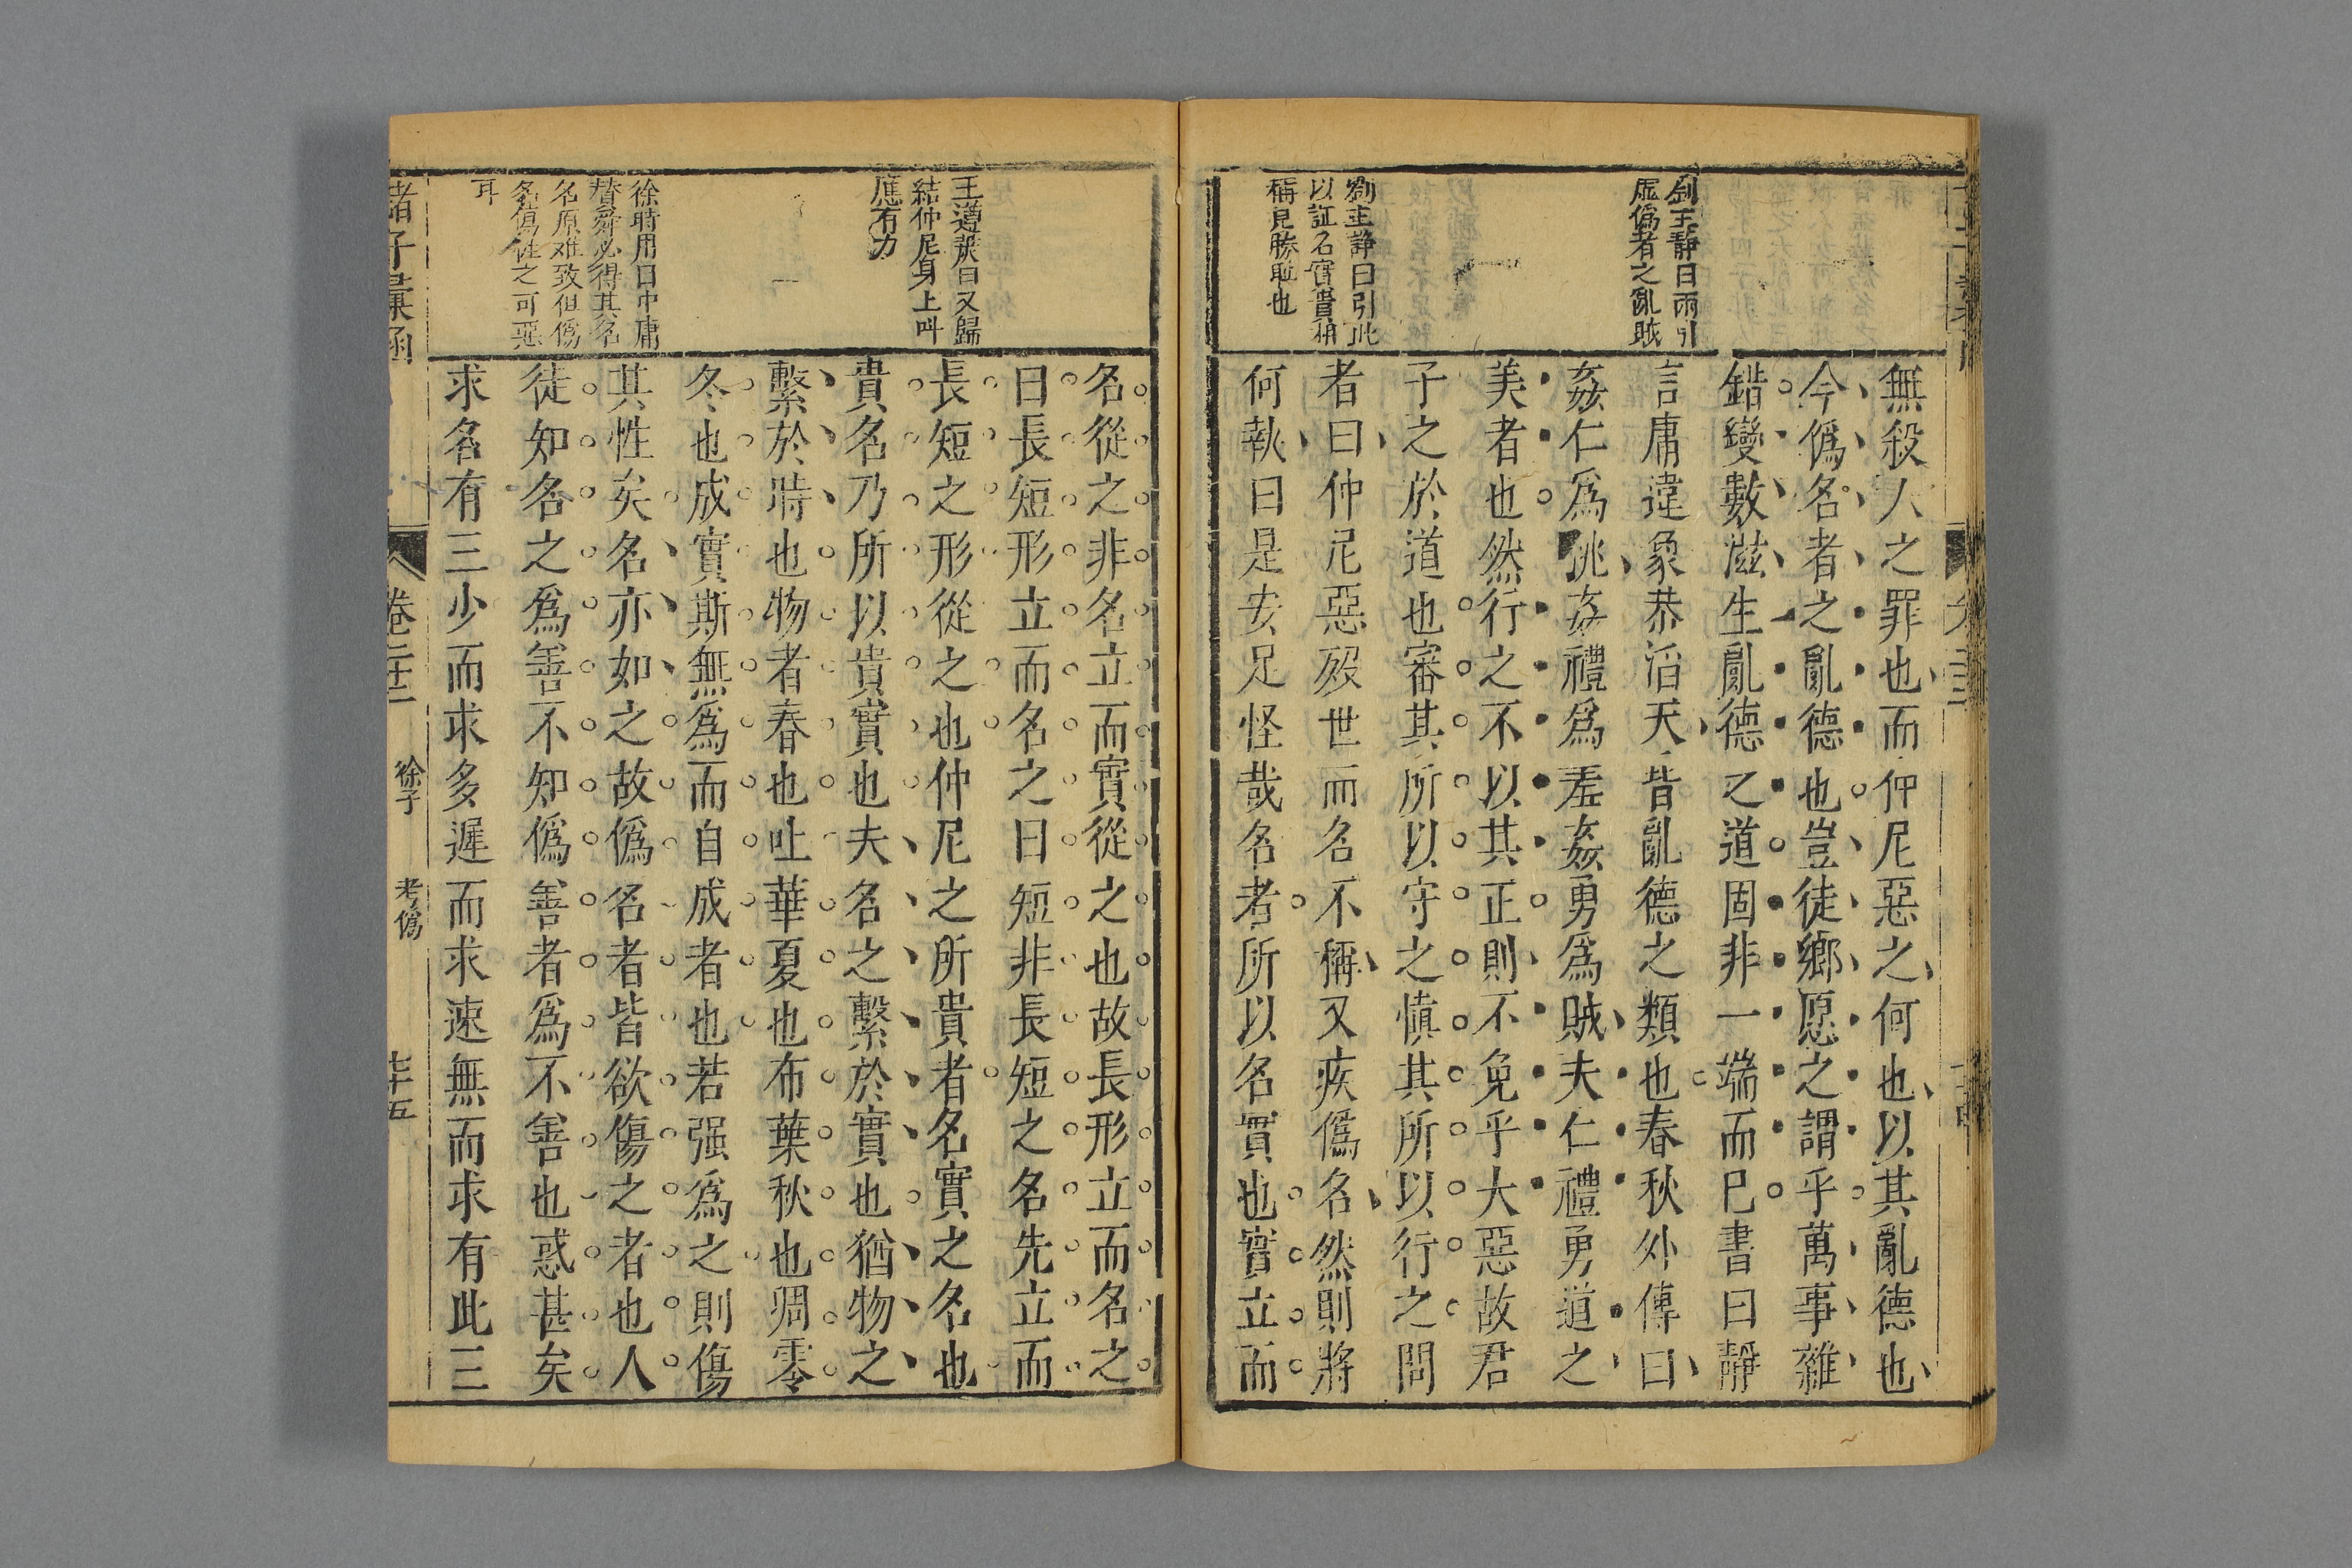 無殺人之罪也而仲尼惡之何也以其亂德也
今僞名者之亂德也豈徒鄉愿之謂乎萬事雜
錯變數滋生亂德之道固非一端而巳書曰靜
言庸違象恭滔天皆亂德之類也春秋外傳曰
姦仁爲佻姦禮爲羞姦勇爲賊夫仁禮勇道之
美者也然行之不以其正則不免乎大惡故君
子之於道也審其所以守之愼其所以行之問
者曰仲尼惡殁世而名不稱又疾僞名然則將
何執曰是安足怪哉名者所以名實也實立而
劉王靜曰兩引
虛僞者之亂賊
以証名實貴相
稱見勝耻也
名從之非名立而實從之也故長形立而名之
曰長短形立而名之曰短非長短之名先立而
長短之形從之也仲尼之所貴者名實之名也
貴名乃所以貴實也夫名之繫於實也猶物之
繫於時也物者春也吐華夏也布葉秋也凋零
冬也成實斯無爲而自成者也若强爲之則傷
其性矣名亦如之故僞名者皆欲傷之者也人
徒知名之爲善不知僞善者爲不善也惑甚矣
求名有三少而求多遲而求速無而求有此三
王遵巖曰又歸
結仲尼身上叫
應有力
徐時用曰中庸
替舜必得其名
名原难致但僞
名傷性之可惡
耳
諸子彙函
卷之二十二
徐子
考僞
七十五